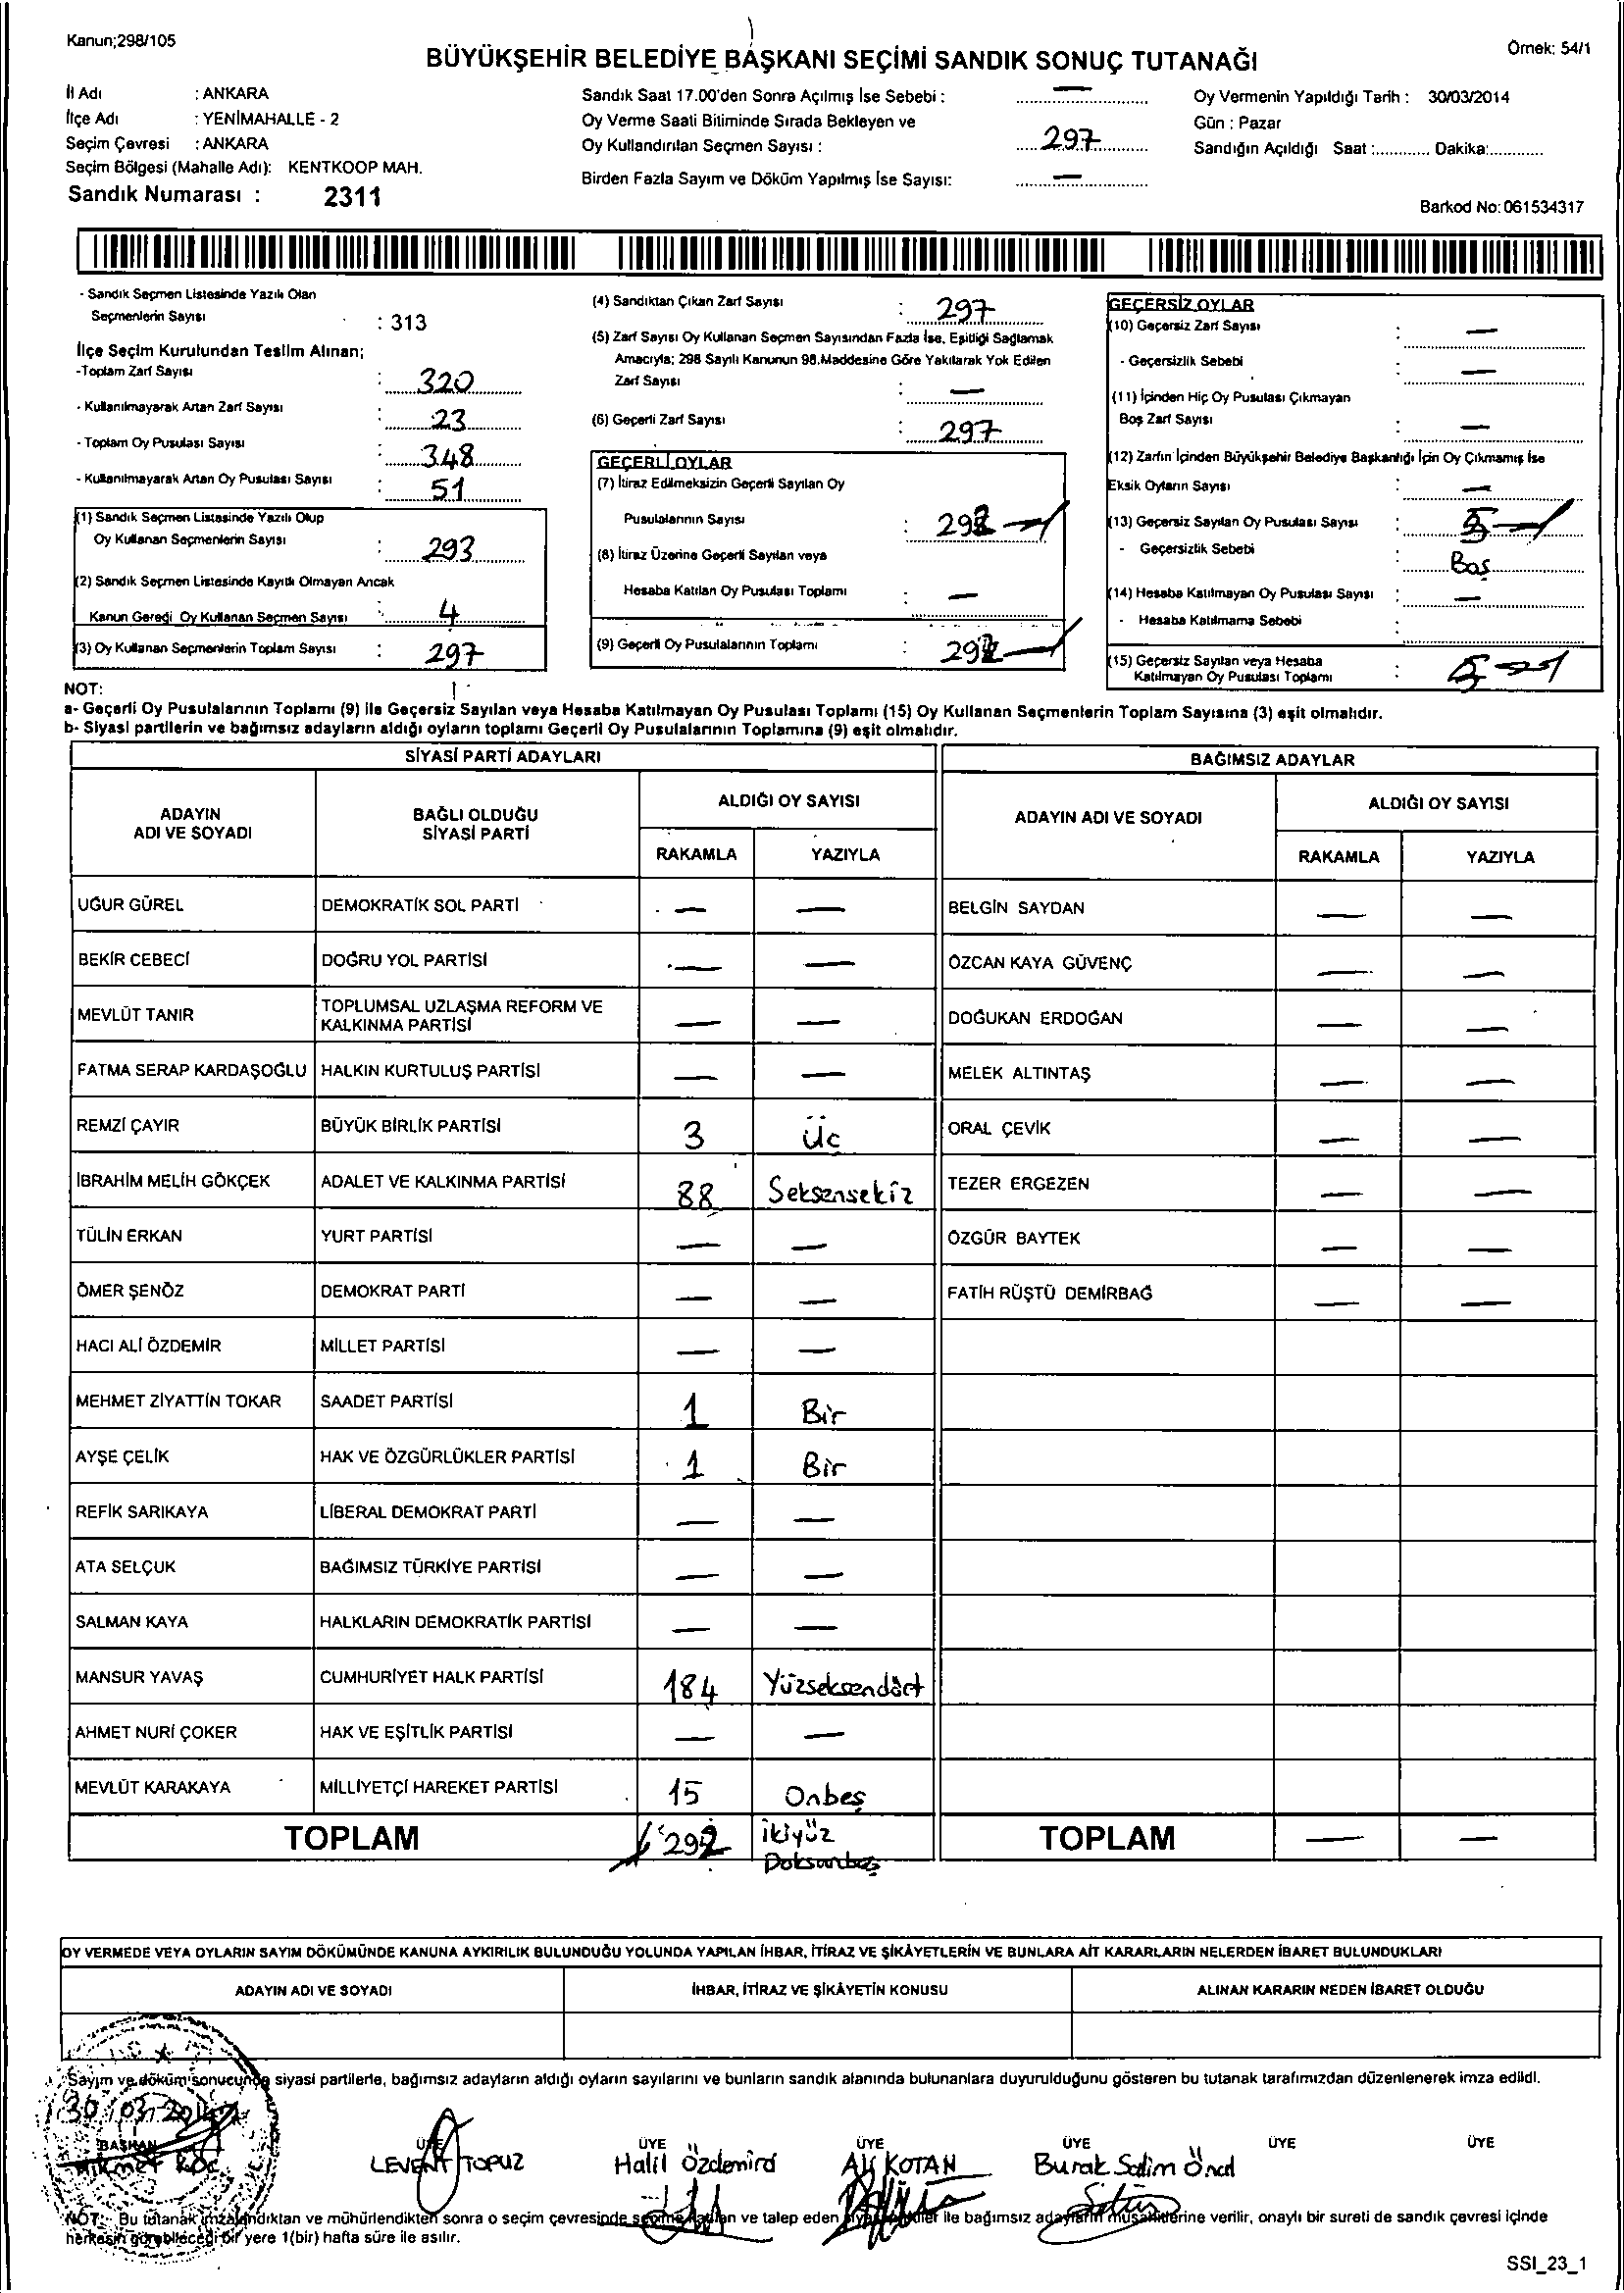 Kanun;298/105
Örnek: 54/1
BÜYÜKŞEHİR BELEDİYE BAŞKANI SEÇİMİ SANDIK SONUÇ TUTANAĞI
İl Adı : ANKARA
İlçe Adı : YENİMAHALLE - 2
Seçim Çevresi : ANKARA
Seçim Bölgesi (Mahalle Adı): KENTKOOP MAH.
Sandık Numarası : 2311
Sandık Saat 17.00'den Sonra Açılmış İse Sebebi : —
Oy Verme Saati Bitiminde Sırada Bekleyen ve
Oy Kullandırılan Seçmen Sayısı : 297
Birden Fazla Sayım ve Döküm Yapılmış İse Sayısı: —
Oy Vermenin Yapıldığı Tarih : 30/03/2014
Gün : Pazar
Sandığın Açıldığı Saat :............ Dakika:............
Barkod No: 061534317
- Sandık Seçmen Listesinde Yazılı Olan
Seçmenlerin Sayısı : 313
İlçe Seçim Kurulundan Teslim Alınan;
-Toplam Zarf Sayısı : 320
- Kullanılmayarak Artan Zarf Sayısı : 23
- Toplam Oy Pusulası Sayısı : 348
- Kullanılmayarak Artan Oy Pusulası Sayısı : 51
(1) Sandık Seçmen Listesinde Yazılı Olup
Oy Kullanan Seçmenlerin Sayısı : 293
(2) Sandık Seçmen Listesinde Kayıtlı Olmayan Ancak
Kanun Gereği Oy Kullanan Seçmen Sayısı : 4
(3) Oy Kullanan Seçmenlerin Toplam Sayısı : 297
(4) Sandıktan Çıkan Zarf Sayısı : 297
(5) Zarf Sayısı Oy Kullanan Seçmen Sayısından Fazla İse, Eşitliği Sağlamak
Amacıyla; 298 Sayılı Kanunun 98.Maddesine Göre Yakılarak Yok Edilen
Zarf Sayısı : —
(6) Geçerli Zarf Sayısı : 297
GEÇERLİ OYLAR
(7) İtiraz Edilmeksizin Geçerli Sayılan Oy
Pusulalarının Sayısı : 292
(8) İtiraz Üzerine Geçerli Sayılan veya
Hesaba Katılan Oy Pusulası Toplamı : —
(9) Geçerli Oy Pusulalarının Toplamı : 292
GEÇERSİZ OYLAR
(10) Geçersiz Zarf Sayısı : —
- Geçersizlik Sebebi : —
(11) İçinden Hiç Oy Pusulası Çıkmayan
Boş Zarf Sayısı : —
(12) Zarfın İçinden Büyükşehir Belediye Başkanlığı İçin Oy Çıkmamış İse
Eksik Oyların Sayısı : —
(13) Geçersiz Sayılan Oy Pusulası Sayısı : 5
- Geçersizlik Sebebi : Boş
(14) Hesaba Katılmayan Oy Pusulası Sayısı : —
- Hesaba Katılmama Sebebi :
(15) Geçersiz Sayılan veya Hesaba
Katılmayan Oy Pusulası Toplamı : 5
NOT:
a- Geçerli Oy Pusulalarının Toplamı (9) ile Geçersiz Sayılan veya Hesaba Katılmayan Oy Pusulası Toplamı (15) Oy Kullanan Seçmenlerin Toplam Sayısına (3) eşit olmalıdır.
b- Siyasi partilerin ve bağımsız adayların aldığı oyların toplamı Geçerli Oy Pusulalarının Toplamına (9) eşit olmalıdır.
SİYASİ PARTİ ADAYLARI
ADAYIN ADI VE SOYADI
BAĞLI OLDUĞU SİYASİ PARTİ
ALDIĞI OY SAYISI
RAKAMLA YAZIYLA
UĞUR GÜREL DEMOKRATİK SOL PARTİ — —
BEKİR CEBECİ DOĞRU YOL PARTİSİ — —
MEVLÜT TANIR TOPLUMSAL UZLAŞMA REFORM VE KALKINMA PARTİSİ — —
FATMA SERAP KARDAŞOĞLU HALKIN KURTULUŞ PARTİSİ — —
REMZİ ÇAYIR BÜYÜK BİRLİK PARTİSİ 3 Üç
İBRAHİM MELİH GÖKÇEK ADALET VE KALKINMA PARTİSİ 88 Seksensekiz
TÜLİN ERKAN YURT PARTİSİ — —
ÖMER ŞENÖZ DEMOKRAT PARTİ — —
HACI ALİ ÖZDEMİR MİLLET PARTİSİ — —
MEHMET ZİYATTİN TOKAR SAADET PARTİSİ 1 Bir
AYŞE ÇELİK HAK VE ÖZGÜRLÜKLER PARTİSİ 1 Bir
REFİK SARIKAYA LİBERAL DEMOKRAT PARTİ — —
ATA SELÇUK BAĞIMSIZ TÜRKİYE PARTİSİ — —
SALMAN KAYA HALKLARIN DEMOKRATİK PARTİSİ — —
MANSUR YAVAŞ CUMHURİYET HALK PARTİSİ 184 Yüzseksendört
AHMET NURİ ÇOKER HAK VE EŞİTLİK PARTİSİ — —
MEVLÜT KARAKAYA MİLLİYETÇİ HAREKET PARTİSİ 15 Onbeş
TOPLAM 292 ikiyüz
Doksanbeş
BAĞIMSIZ ADAYLAR
ADAYIN ADI VE SOYADI
ALDIĞI OY SAYISI
RAKAMLA YAZIYLA
BELGİN SAYDAN — —
ÖZCAN KAYA GÜVENÇ — —
DOĞUKAN ERDOĞAN — —
MELEK ALTINTAŞ — —
ORAL ÇEVİK — —
TEZER ERGEZEN — —
ÖZGÜR BAYTEK — —
FATİH RÜŞTÜ DEMİRBAĞ — —
TOPLAM — —
OY VERMEDE VEYA OYLARIN SAYIM DÖKÜMÜNDE KANUNA AYKIRILIK BULUNDUĞU YOLUNDA YAPILAN İHBAR, İTİRAZ VE ŞİKÂYETLERİN VE BUNLARA AİT KARARLARIN NELERDEN İBARET BULUNDUKLARI
ADAYIN ADI VE SOYADI İHBAR, İTİRAZ VE ŞİKÂYETİN KONUSU ALINAN KARARIN NEDEN İBARET OLDUĞU
Sayım ve döküm sonucunda siyasi partilerle, bağımsız adayların aldığı oyların sayılarını ve bunların sandık alanında bulunanlara duyurulduğunu gösteren bu tutanak tarafımızdan düzenlenerek imza edildi.
30/03/2014
BAŞKAN ÜYE ÜYE ÜYE ÜYE ÜYE ÜYE
Hikmet KOÇ LEVENT TOPUZ Halil Özdemird Ali KOTAN Burak Salim Önal
NOT: Bu tutanak imzalandıktan ve mühürlendikten sonra o seçim çevresinde seçime katılan ve talep eden siyasi partiler ile bağımsız adayların müşahitlerine verilir, onaylı bir sureti de sandık çevresi içinde
herkesin görebileceği bir yere 1(bir) hafta süre ile asılır.
SSI_23_1